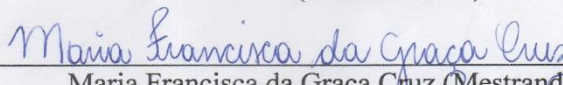 Maria Francisca da Graça Cruz
Maria Francisca da Graça Cruz (Mestrand